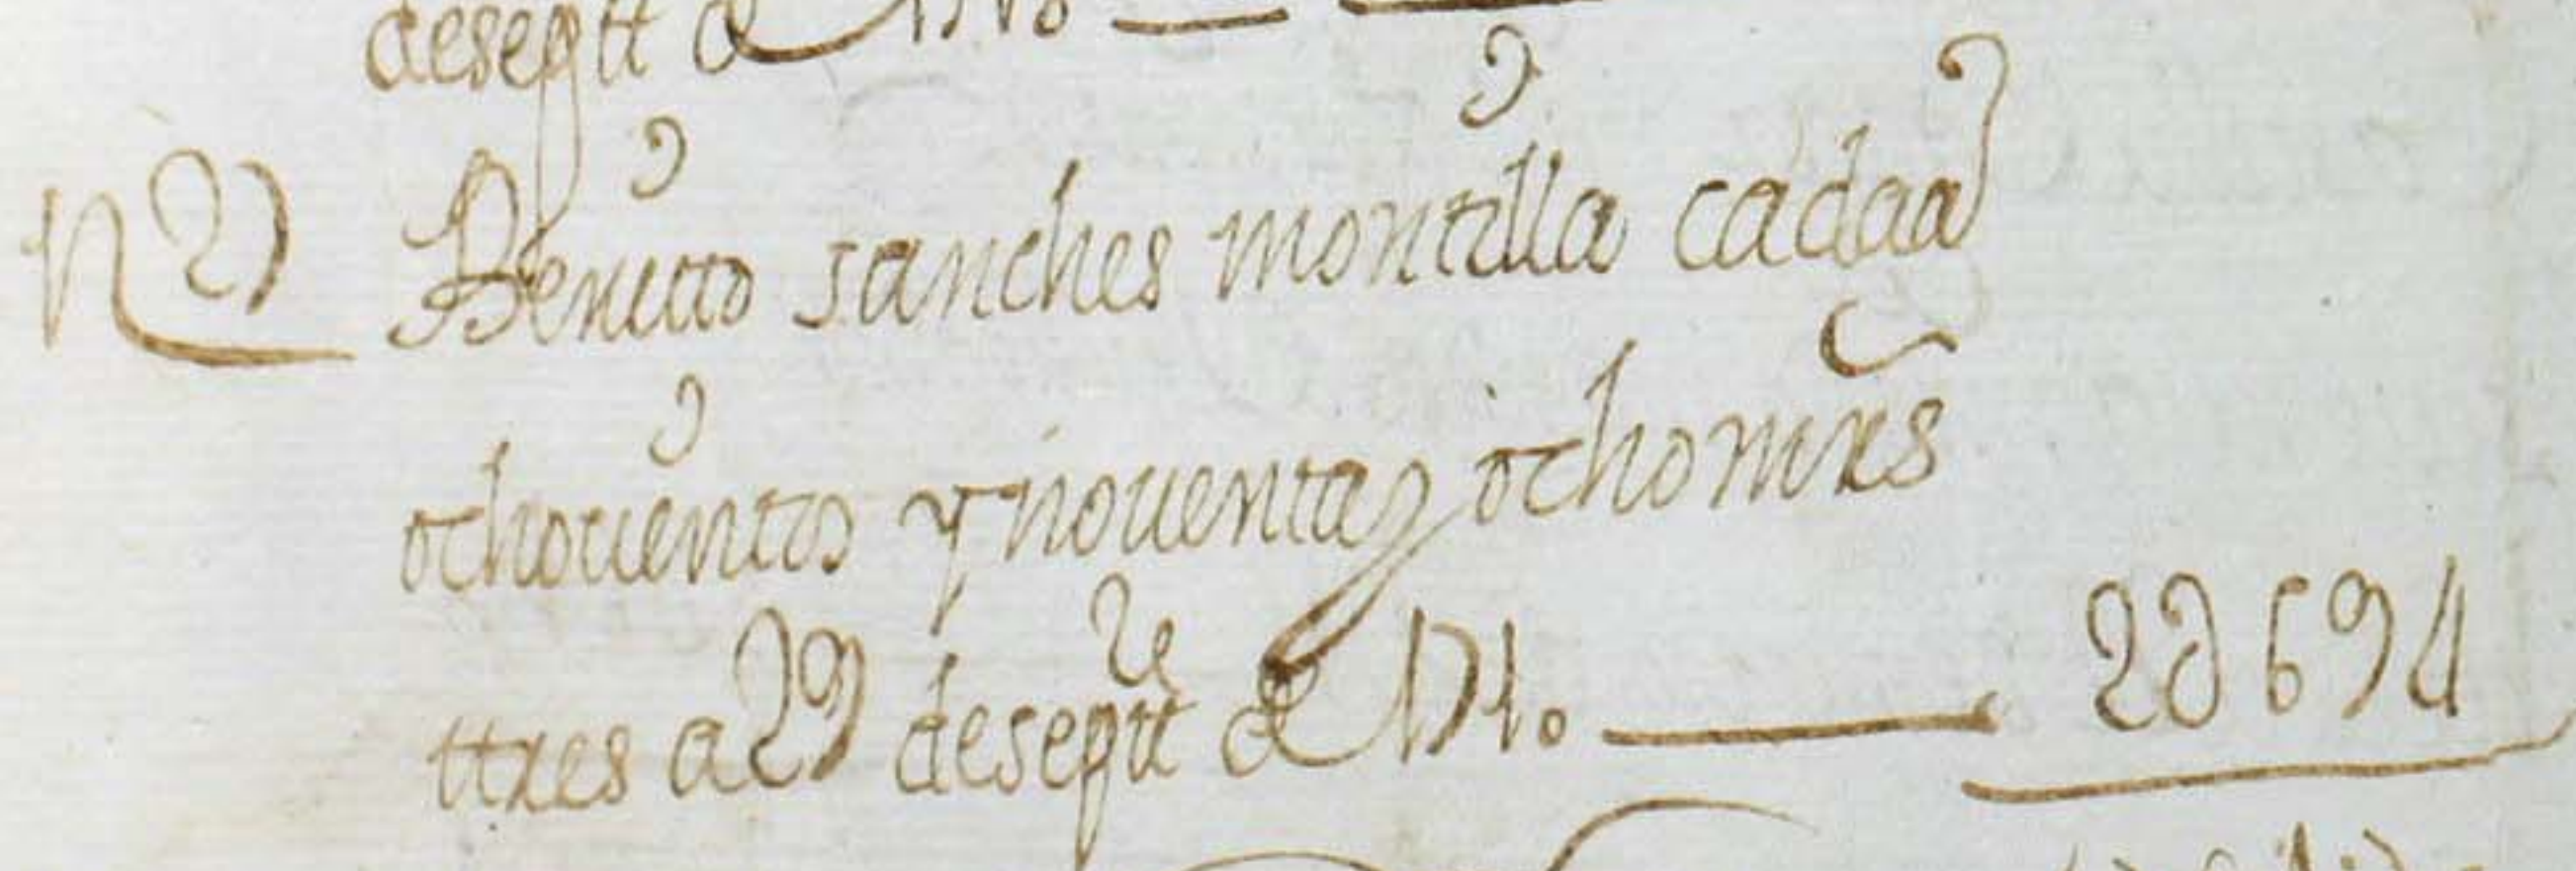 desept de 1710
n 21 Benitto sanches montilla cadaa
ochocientos y noventa y ocho mrs
ttres a 29 desepte de 1710 2U694